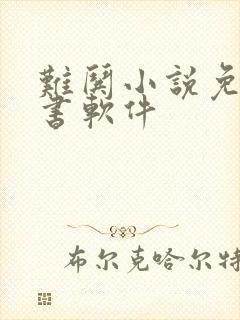 難関小説免
書軟件
布尔克哈尔特